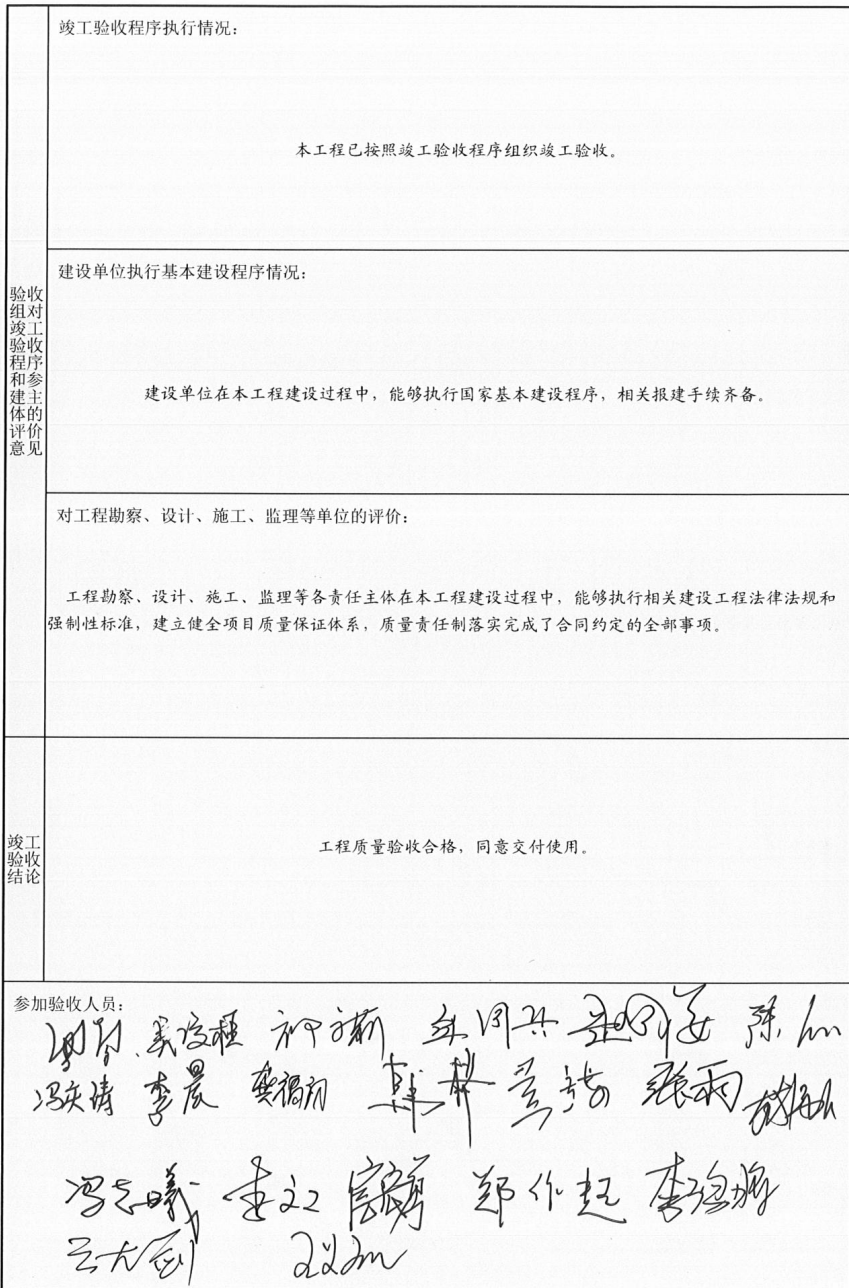 竣工验收程序执行情况：
本工程已按照竣工验收程序组织竣工验收。
验收组对竣工验收程序和参建主体的评价意见
建设单位执行基本建设程序情况：
建设单位在本工程建设过程中，能够执行国家基本建设程序，相关报建手续齐备。
对工程勘察、设计、施工、监理等单位的评价：
工程勘察、设计、施工、监理等各责任主体在本工程建设过程中，能够执行相关建设工程法律法规和
强制性标准，建立健全项目质量保证体系，质量责任制落实完成了合同约定的全部事项。
竣工验收结论
工程质量验收合格，同意交付使用。
参加验收人员：
陈
李晨 张雨
冯志曦 李 郑作 李